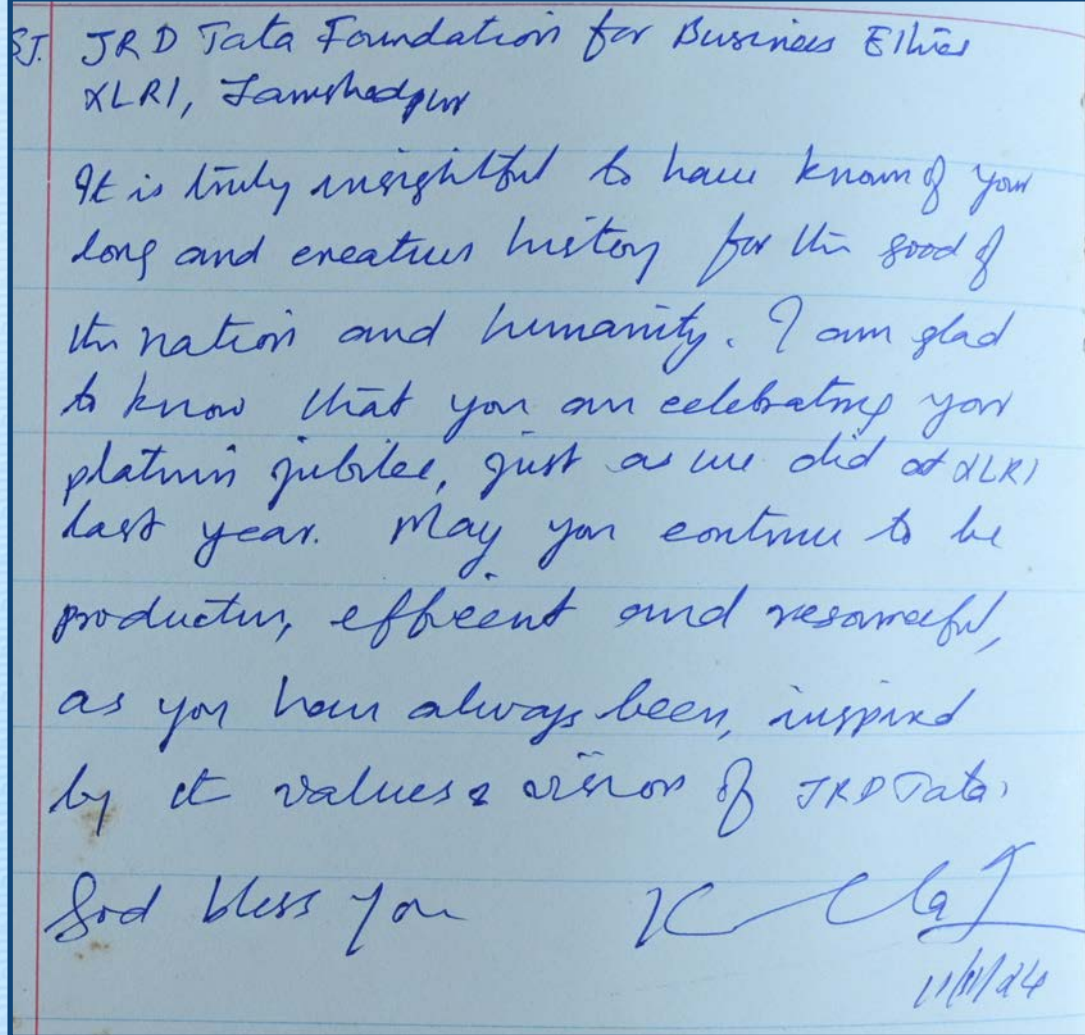 SJ. JRD Tata Foundation for Business Ethics
XLRI, Jamshedpur
It is truly insightful to have known of your
long and creative history for the good of
the nation and humanity. I am glad
to know that you are celebrating your
platinum jubilee, just as we did at XLRI
last year. May you continue to be
productive, efficient and resourceful,
as you have always been, inspired
by the values & vision of JRD Tata.
God bless you
11/11/24